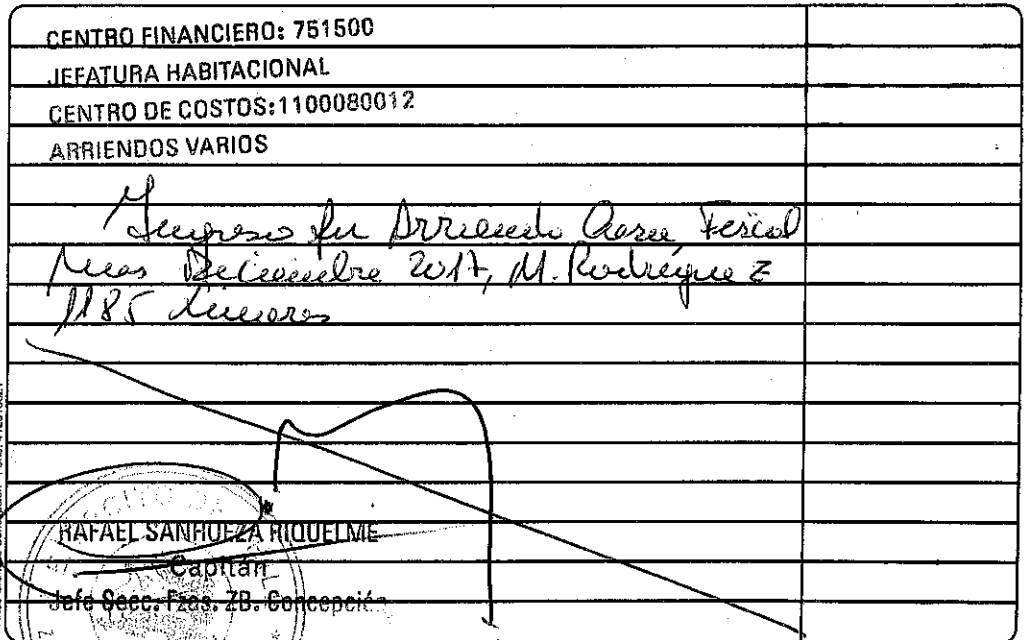 CENTRO FINANCIERO: 751500
JEFATURA HABITACIONAL
CENTRO DE COSTOS:1100080012
ARRIENDOS VARIOS
Ingreso por Arriendo Casa Fiscal
Mes Diciembre 2017, M. Rodríguez
1185 Linares
RAFAEL SANHUEZA RIQUELME
Capitán
Jefe Secc. Fzas. ZB. Concepción